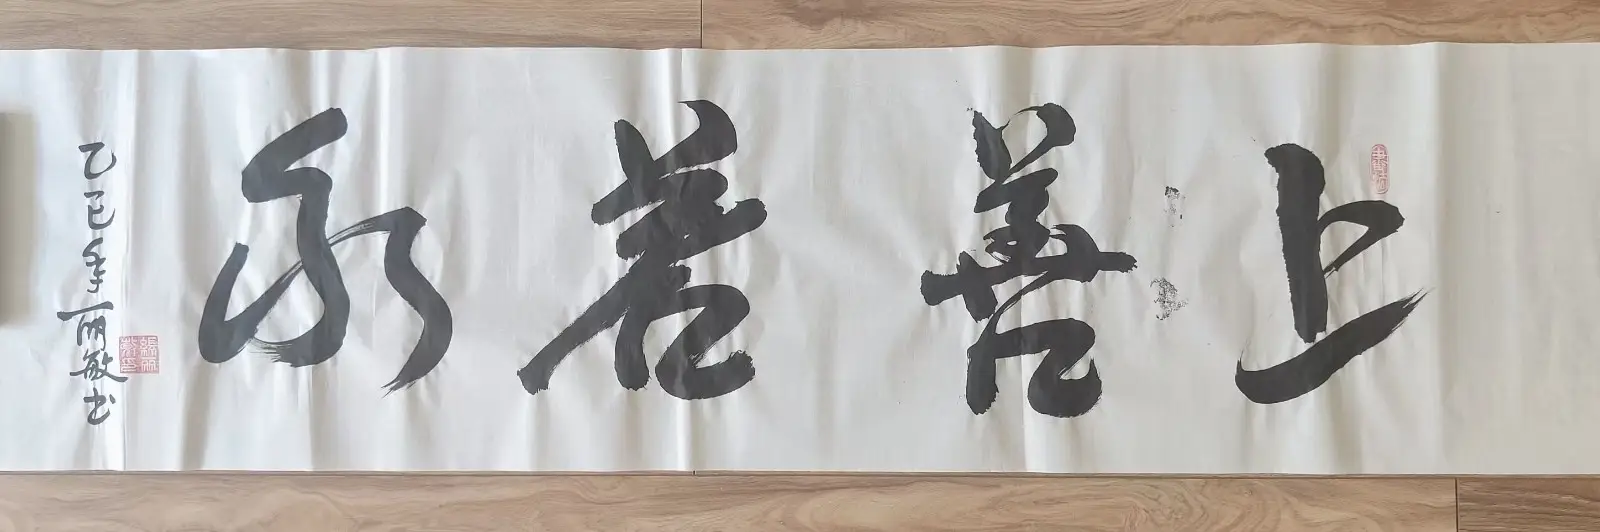 上善若水
乙巳年丽敏书